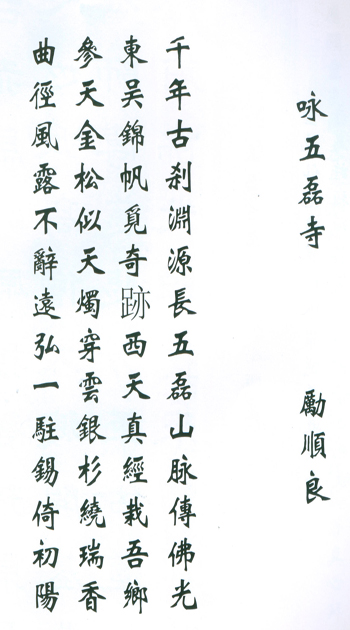 咏五磊寺
勵順良
千年古刹淵源長五磊山脉傳佛光
東吴錦帆覓奇跡西天真經栽吾鄉
參天金松似天燭穿雲銀杉繞瑞香
曲徑風露不辭遠弘一駐錫倚初陽